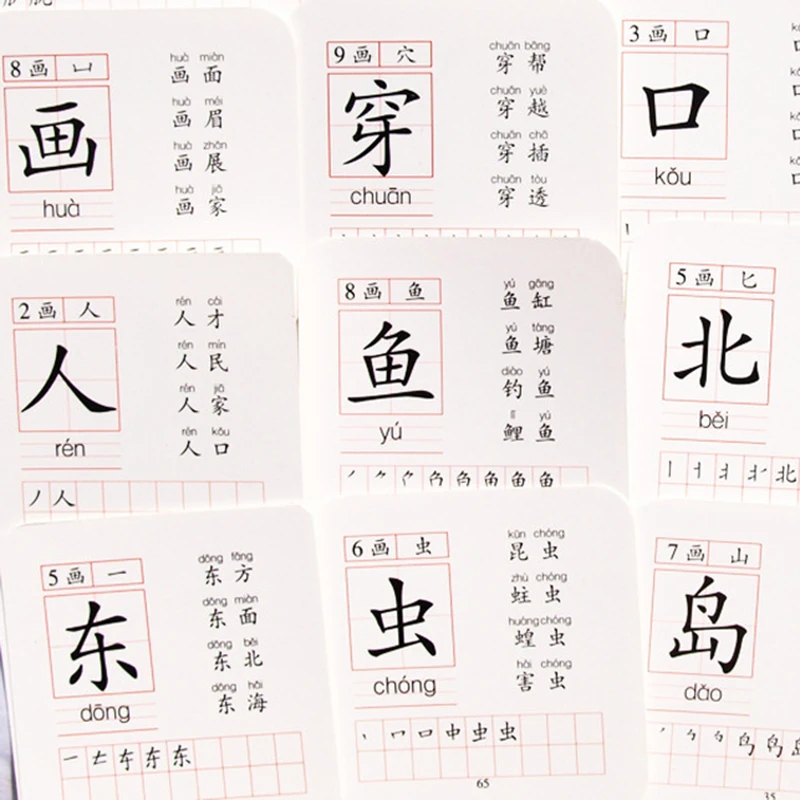 8画 凵
画
huà
huà miàn
画 面
huà méi
画 眉
huà zhǎn
画 展
huà jiā
画 家
9画 穴
穿
chuān
chuān bāng
穿 帮
chuān yuè
穿 越
chuān chā
穿 插
chuān tòu
穿 透
3画 口
口
kǒu
2画 人
人
rén
rén cái
人 才
rén mín
人 民
rén jiā
人 家
rén kǒu
人 口
丿 人
8画 鱼
鱼
yú
yú gāng
鱼 缸
yú táng
鱼 塘
diào yú
钓 鱼
lǐ yú
鲤 鱼
5画 匕
北
běi
5画 一
东
dōng
dōng fāng
东 方
dōng miàn
东 面
dōng běi
东 北
dōng hǎi
东 海
6画 虫
虫
chóng
kūn chóng
昆 虫
zhù chóng
蛀 虫
huáng chóng
蝗 虫
hài chóng
害 虫
65
7画 山
岛
dǎo
35